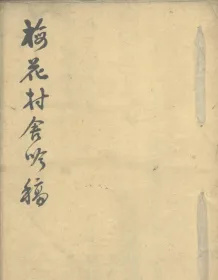 梅花村舍吟稿